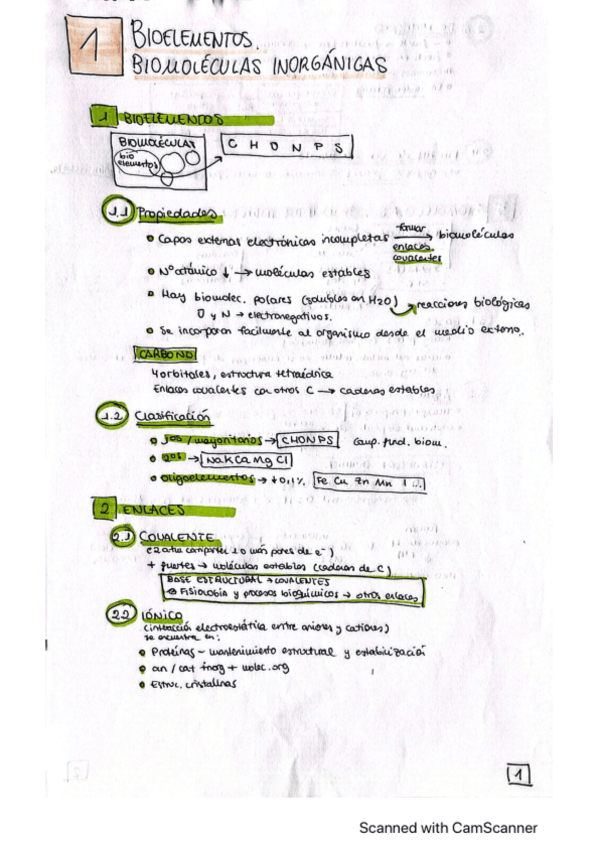 1
BIOELEMENTOS.
BIOMOLÉCULAS INORGÁNICAS
1 BIOELEMENTOS
BIOMOLÉCULAS
bio
elementos
C H O N P S
1.1 Propiedades
Capas externas electrónicas incompletas formar enlaces covalentes → biomoléculas
Nº atómico ↓ → moléculas estables
Hay biomolec. polares (solubles en H2O) → reacciones biológicas
O y N → electronegativos.
Se incorporan facilmente al organismo desde el medio externo.
CARBONO
4 orbitales, estructura tetraédrica
Enlaces covalentes con otros C → cadenas estables
1.2 Clasificación
1os / mayoritarios → CHONPS Comp. fund. biom.
2os → Na K Ca Mg Cl
oligoelementos → ↓0,1%. Fe Cu Zn Mn I ...
2 ENLACES
2.1 COVALENTE
(2 atm comparten 1 o más pares de e-)
+ fuertes → moléculas estables (cadenas de C)
BASE ESTRUCTURAL → COVALENTES
FISIOLOGÍA y procesos bioquímicos → otros enlaces
2.2 IÓNICO
(interacción electroestática entre aniones y cationes)
se encuentra en:
Proteínas - mantenimiento estructural y estabilización
an / cat inorg + molec. org
Estruc. cristalinas
1
Scanned with CamScanner